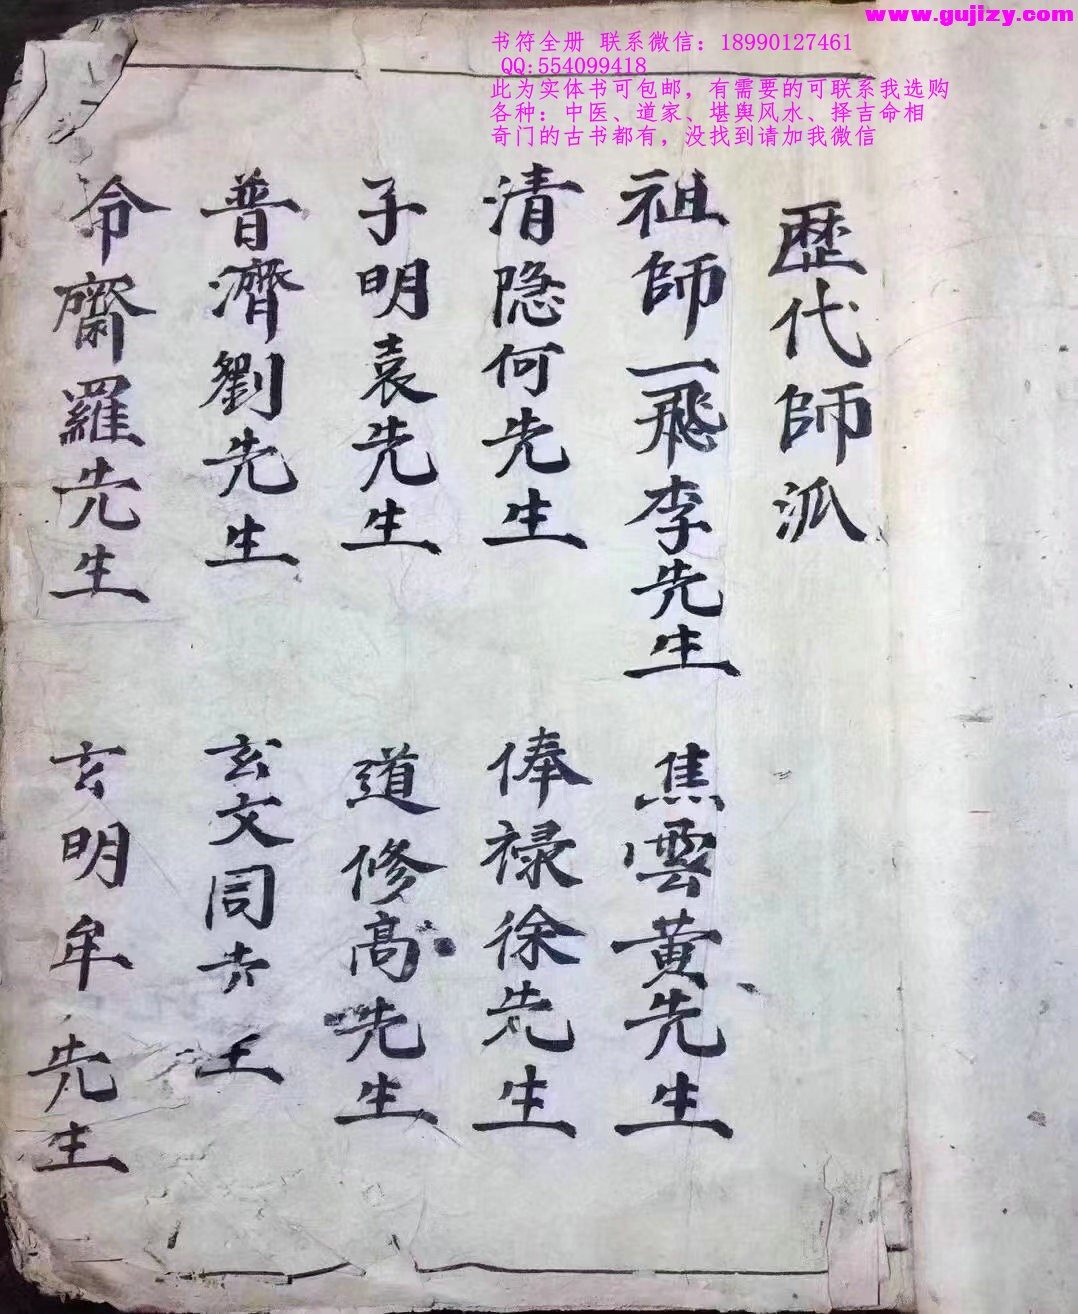 www.gujizy.com
书符全册 联系微信：18990127461
QQ:554099418
此为实体书可包邮，有需要的可联系我选购
各种：中医、道家、堪舆风水、择吉命相
奇门的古书都有，没找到请加我微信
歷代師派
祖師一飛李先生 焦雲黄先生
清隐何先生 俸禄徐先生
子明袁先生 道修高先生
普濟劉先生 玄文同
命齋羅先生 玄明牟先生